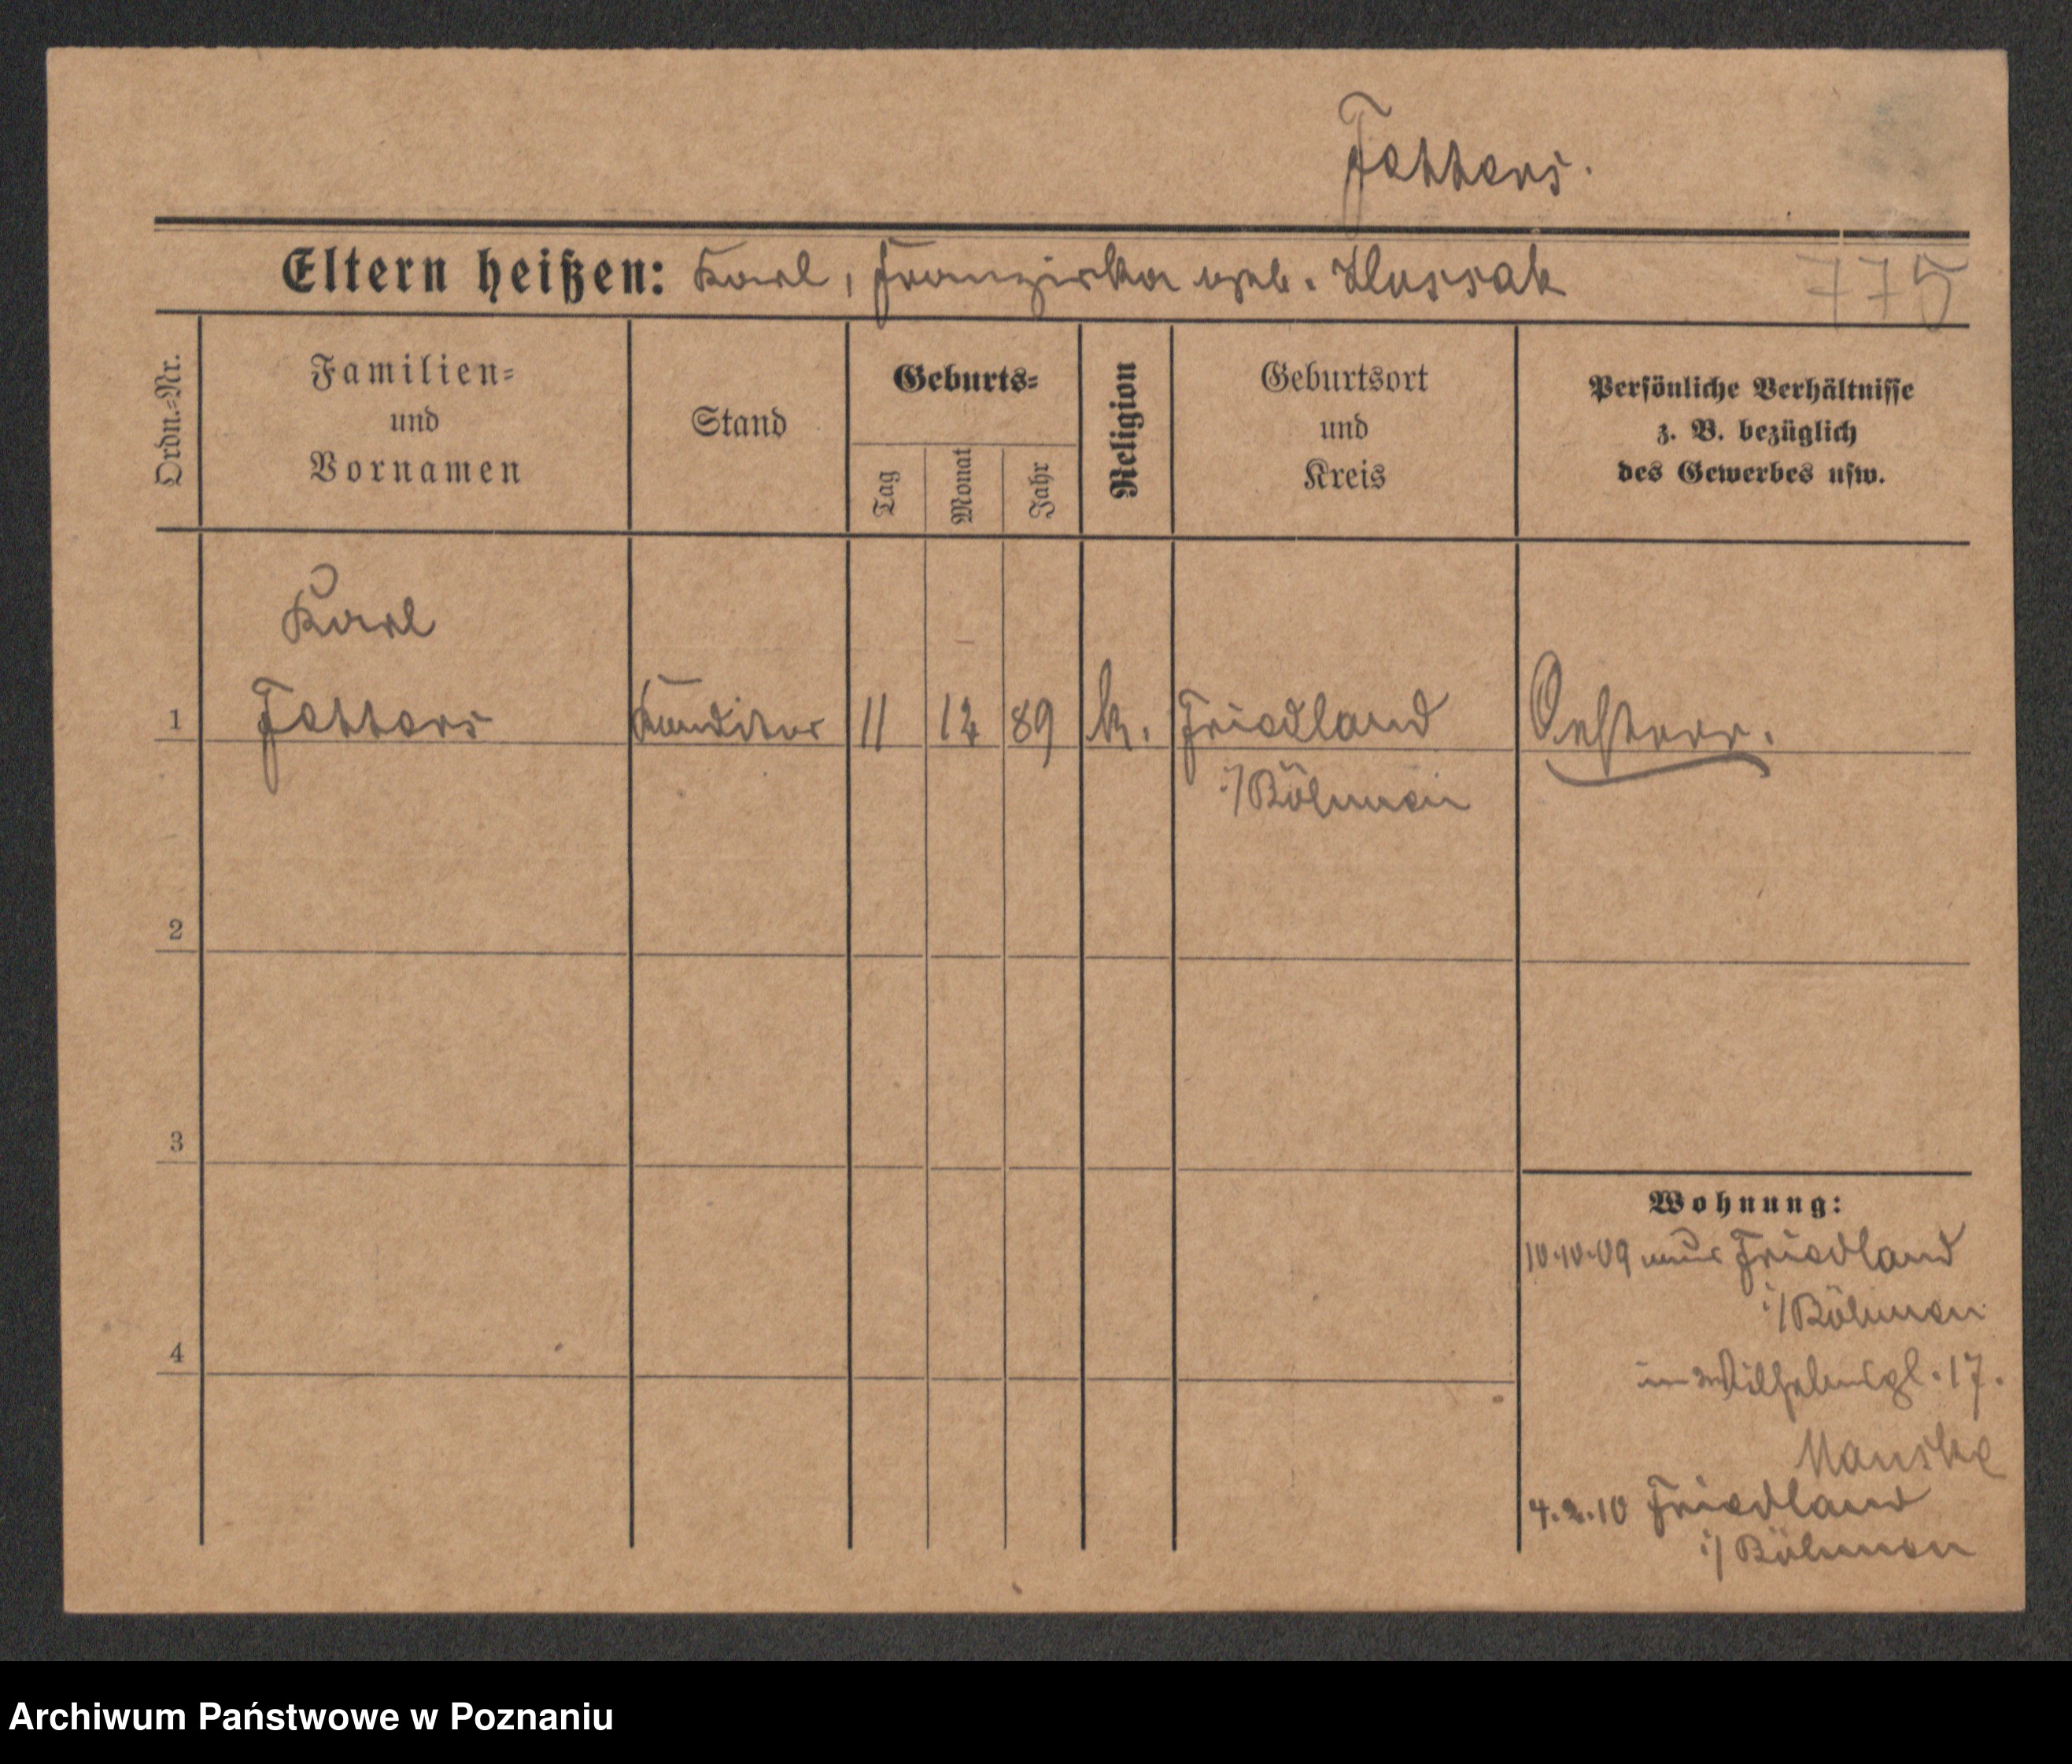 Fetters.
Eltern heißen: Karl, Franziska geb. Hussak
775
Ordn.-Nr.
Familien-
und
Vornamen
Stand
Geburts-
Tag
Monat
Jahr
Religion
Geburtsort
und
Kreis
Persönliche Verhältnisse
z. B. bezüglich
des Gewerbes usw.
Karl
1 Fetters Konditor 11 12 89 k. Friedland Oesterr.
i/Böhmen
2
3
4
Wohnung:
10.10.09 aus Friedland
i/Böhmen
in Wilhelmspl. 17.
Manske
4.2.10 Friedland
i/Böhmen
Archiwum Państwowe w Poznaniu